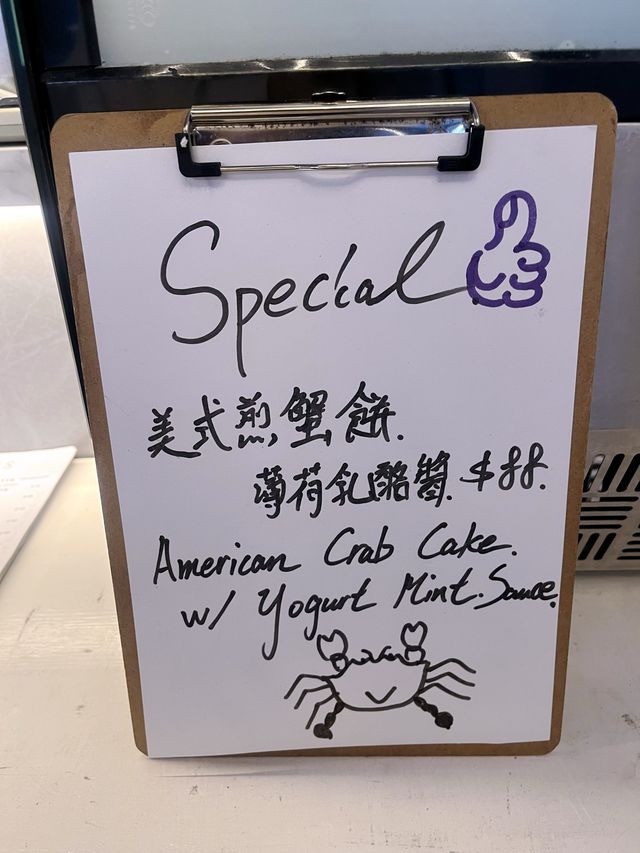 Special
美式煎蟹餅.
薄荷乳酪醬. $88.
American Crab Cake.
w/ Yogurt Mint. Sauce.